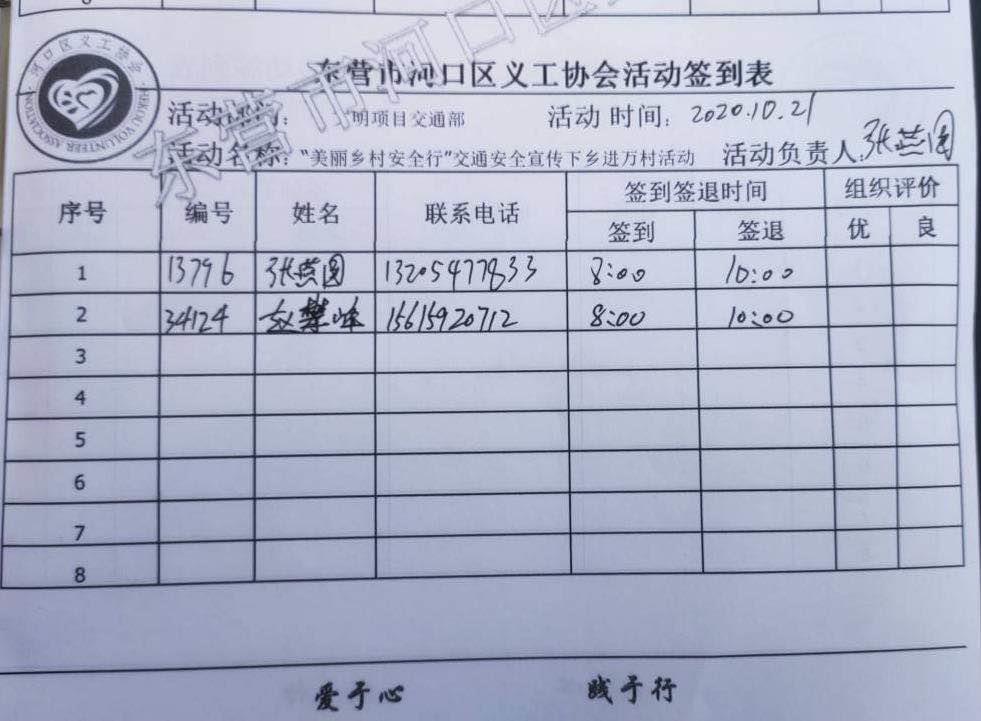 东营市河口区义工协会活动签到表
河口区义工协会
HEKOU VOLUNTEER ASSOCIATION
活动部门: 明项目交通部 活动时间: 2020.10.21
活动名称:“美丽乡村安全行”交通安全宣传下乡进万村活动 活动负责人:张燕圆
序号 编号 姓名 联系电话 签到签退时间 组织评价
签到 签退 优 良
1 13796 张燕圆 13205477833 8:00 10:00
2 34124 赵攀峰 15615920712 8:00 10:00
3
4
5
6
7
8
爱于心 践于行
东营市河口区